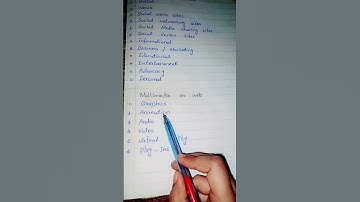 Social news sites
Social Networking sites
Social Media sharing sites
Social Review sites
Informational
Business / Marketing
Educational
Entertainment
Advocacy
Personal
Multimedia on web
1 Graphics
2 Animation
3 Audio
4 Video
5 Virtual
6 Plug-Ins